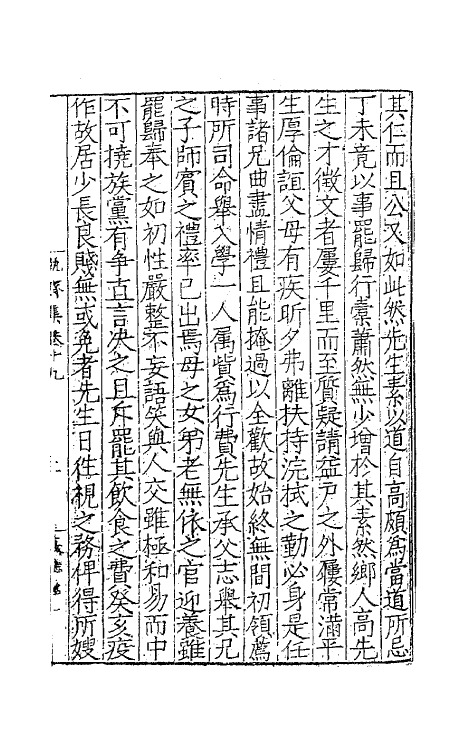 其仁而且公又如此然先生素以道自高頗爲當道所忌
丁未竟以事罷歸行橐蕭然無少增於其素然鄉人高先
生之才徵文者屢千里而至質疑請益戸之外屨常滿平
生厚倫誼父母有疾昕夕弗離扶持浣拭之勤必身是任
事諸兄曲盡情禮且能掩過以全歡故始終無間初領薦
時所司命舉入學一人属貲爲行費先生承父志舉其兄
之子師賓之禮率己出焉母之女弟老無依之官迎養雖
罷歸奉之如初性嚴整不妄語笑與人交雖極和易而中
不可撓族黨有争直言决之且斥罷其飲食之費癸亥疫
作故居少長良賤無或免者先生日徃視之務俾得所嫂
集卷十九